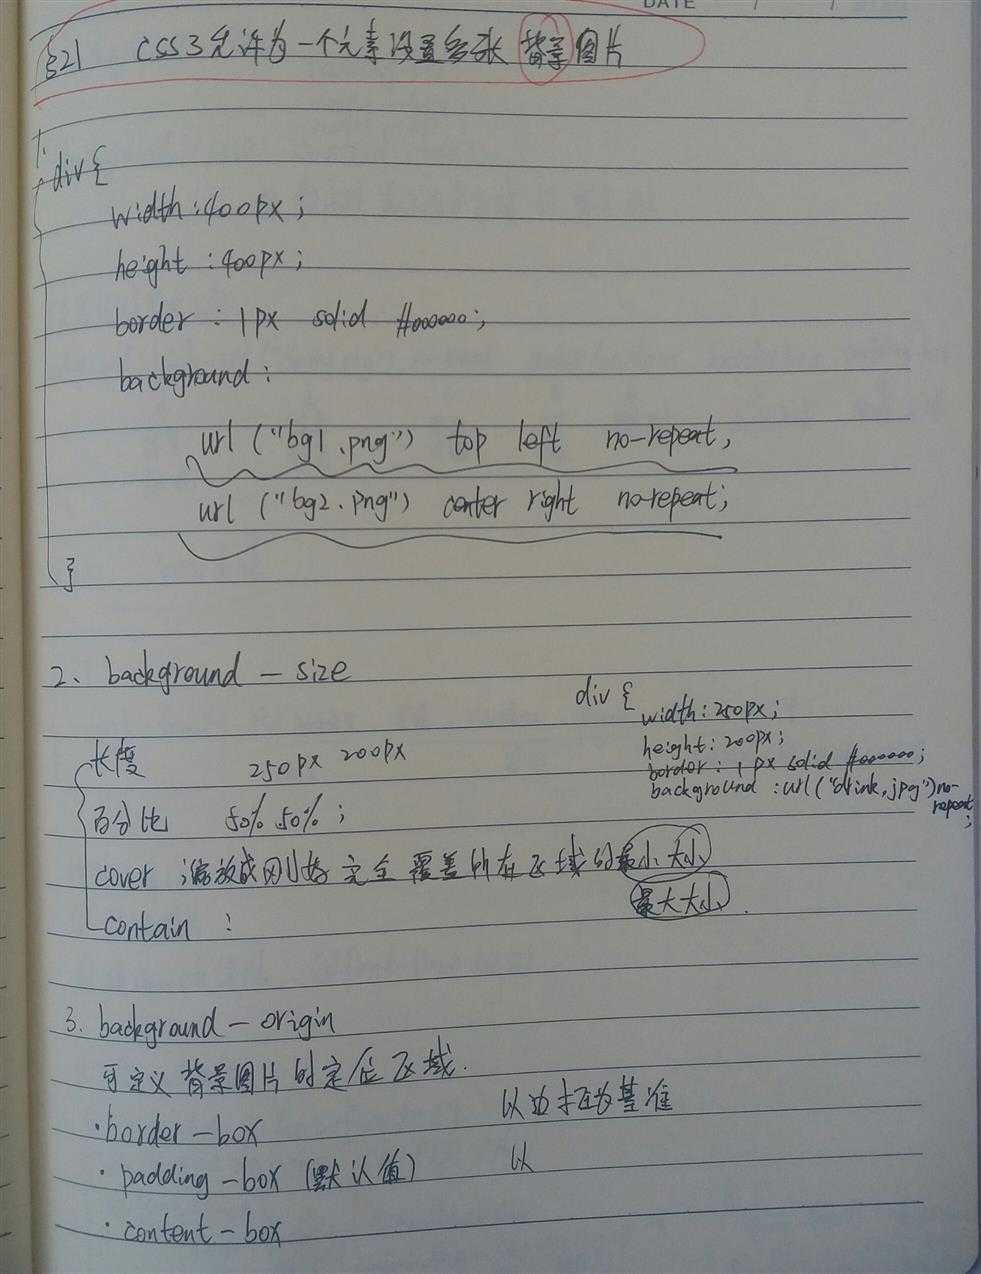 DATE / /
§21 CSS3允许为一个元素设置多张背景图片
1.
div {
width:400px;
height:400px;
border:1px solid #000000;
background:
url("bg1.png") top left no-repeat,
url("bg2.png") center right no-repeat;
}
2、background-size
长度 250px 200px
百分比 50% 50%;
cover:缩放成刚好完全覆盖所在区域的最小大小
最大大小.
contain:
div {
width:250px;
height:200px;
border:1px solid #000000;
background:url("drink.jpg")no-
repeat;
3. background-origin
可定义背景图片的定位区域.
·border-box 以边框为基准
·padding-box(默认值) 以
·content-box